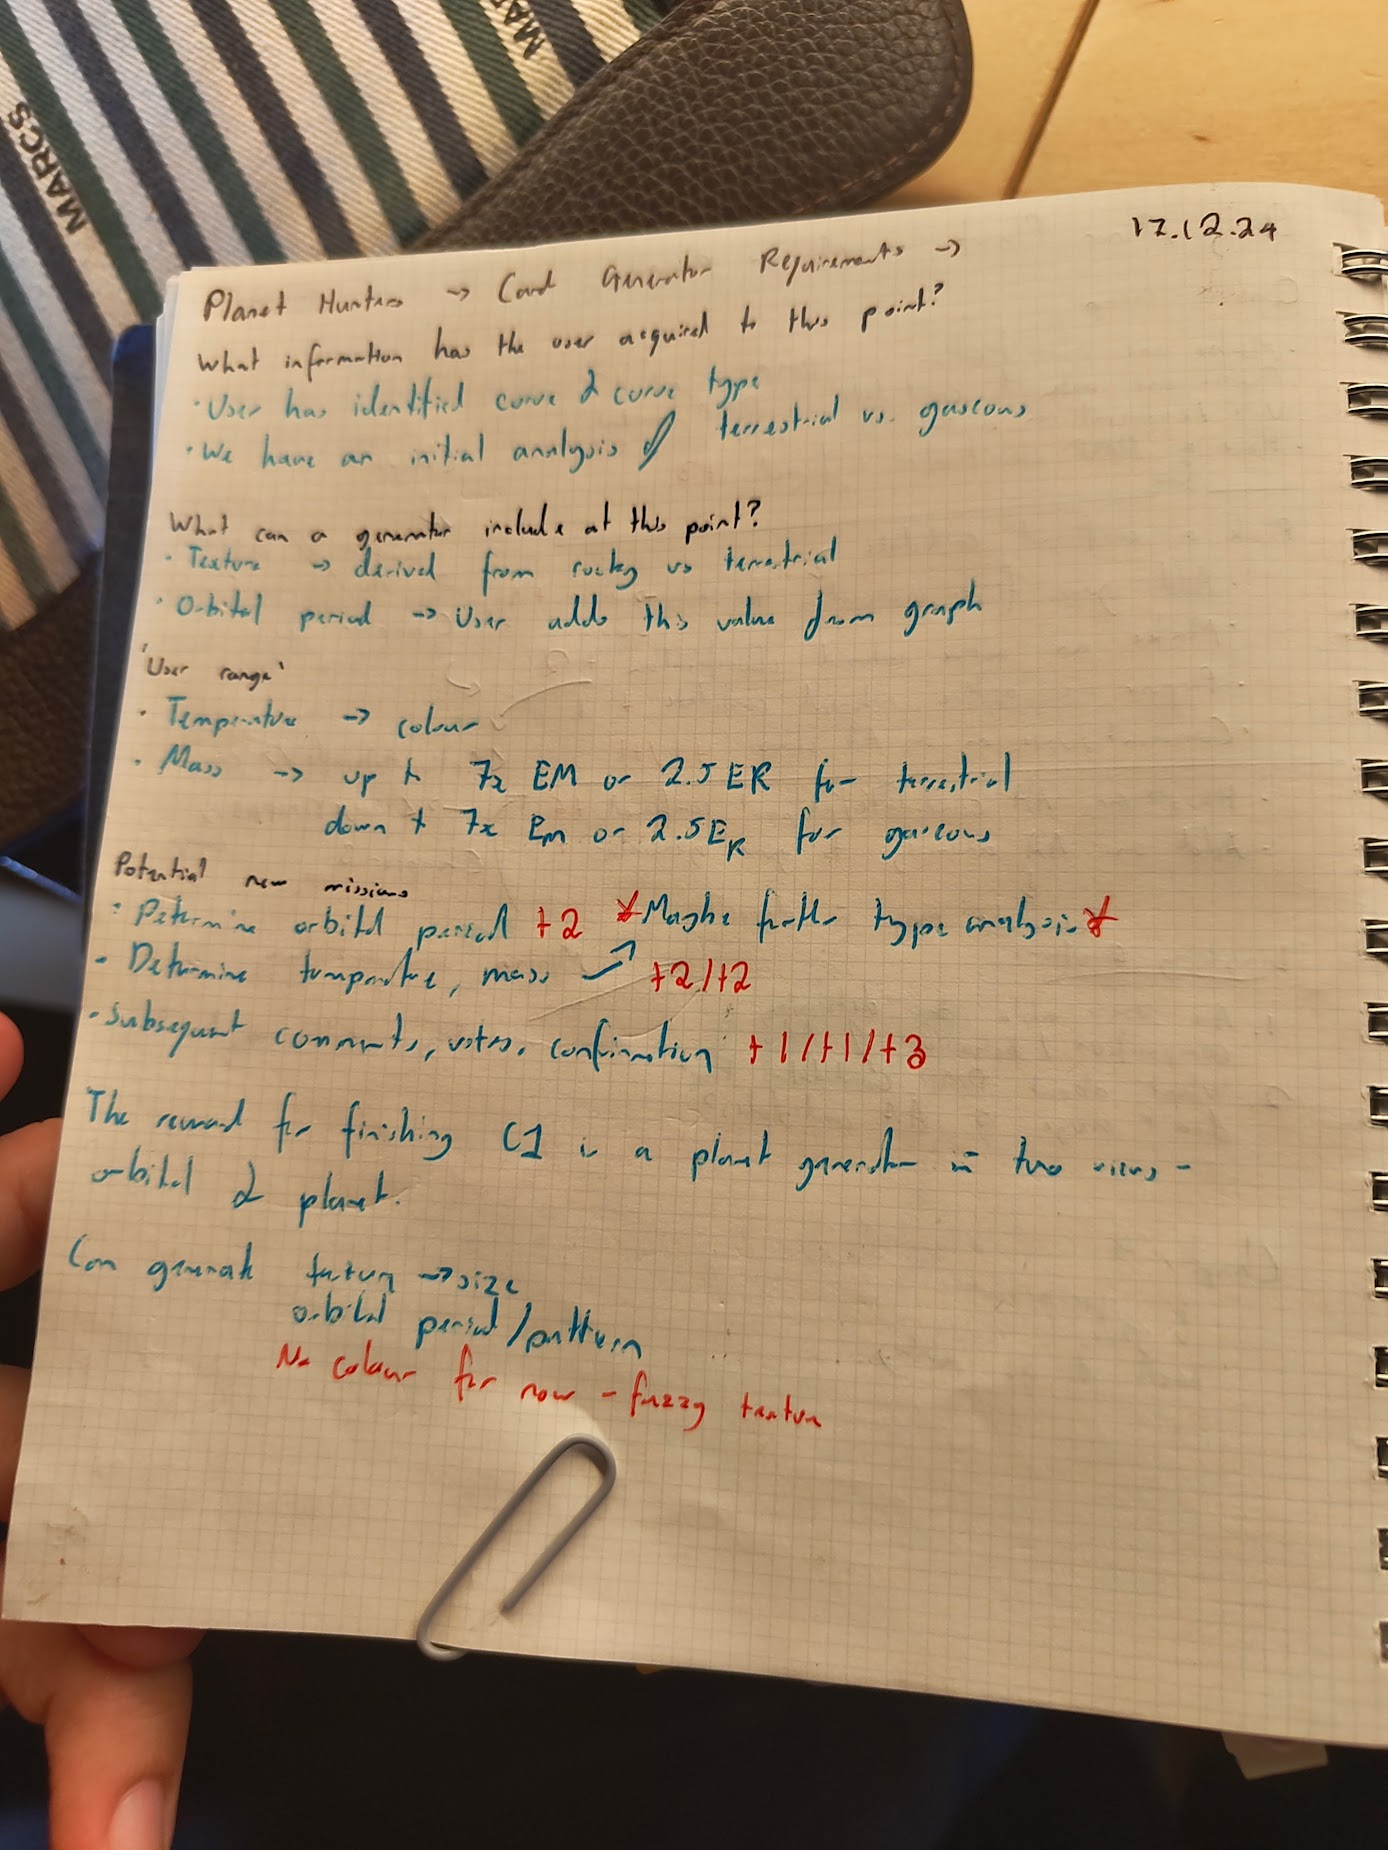 MARCS
MA
17.12.24
Planet Hunters → Card Generator Requirements →
What information has the user acquired to this point?
• User has identified curve & curve type
• We have an initial analysis of terrestrial vs. gaseous
What can a generator include at this point?
• Texture → derived from rocky vs terrestrial
• Orbital period → User adds this value from graph
'User range'
• Temperature → colour
• Mass → up to 7x EM or 2.5 ER for terrestrial
down to 7x EM or 2.5ER for gaseous
Potential new missions
• Determine orbital period +2 *Maybe further type analysis*
• Determine temperature, mass +2/+2
• Subsequent comments, votes, confirmation +1/+1/+3
The reward for finishing C1 is a planet generator in two views -
orbital & planet.
Can generate texture → size
orbital period/pattern
No colour for now - fuzzy texture